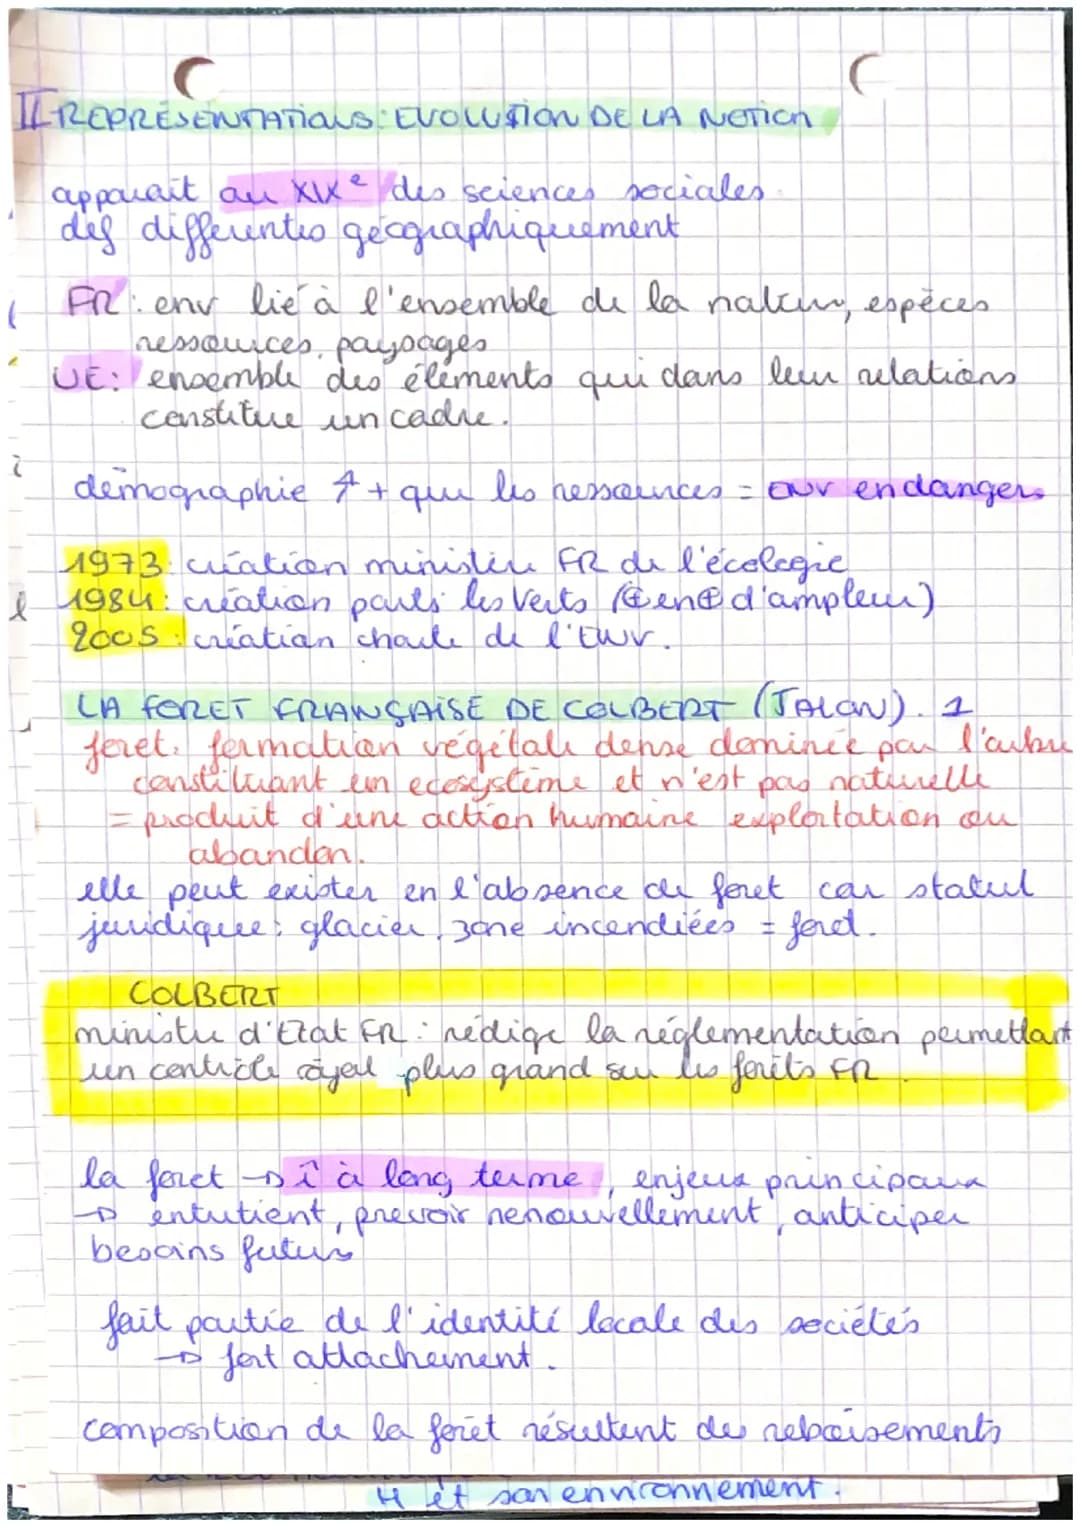 II REPRÉSENTATIONS: EVOLUTION DE LA NOTION
apparait au XIXe des sciences sociales.
def differentes géographiquement
FR: env lié à l'ensemble de la nature, espèces
ressources, paysages
UE: ensemble des éléments qui dans leur relations
constitue un cadre.
démographie ↗ + que les ressources = env en danger
1973: création ministère FR de l'écologie
1984: création partis les Verts (⊕ en ⊕ d'ampleur)
2005: création charte de l'Env.
LA FORET FRANÇAISE DE COLBERT (JALON). 1
foret: formation végétale dense dominée par l'arbre
constituant un ecosystème et n'est pas naturelle
= produit d'une action humaine exploitation ou
abandon.
elle peut exister en l'absence de foret car statut
juridique: glacier, zone incendiées = foret.
COLBERT
ministre d'Etat FR: rédige la réglementation permettant
un contrôle royal plus grand sur les forêts FR
la foret → î à long terme, enjeux principaux
→ entretient, prevoir renouvellement, anticiper
besoins futurs
fait partie de l'identité locale des sociétés
→ fort attachement.
composition de la forêt résultent des reboisements
H et son environnement.